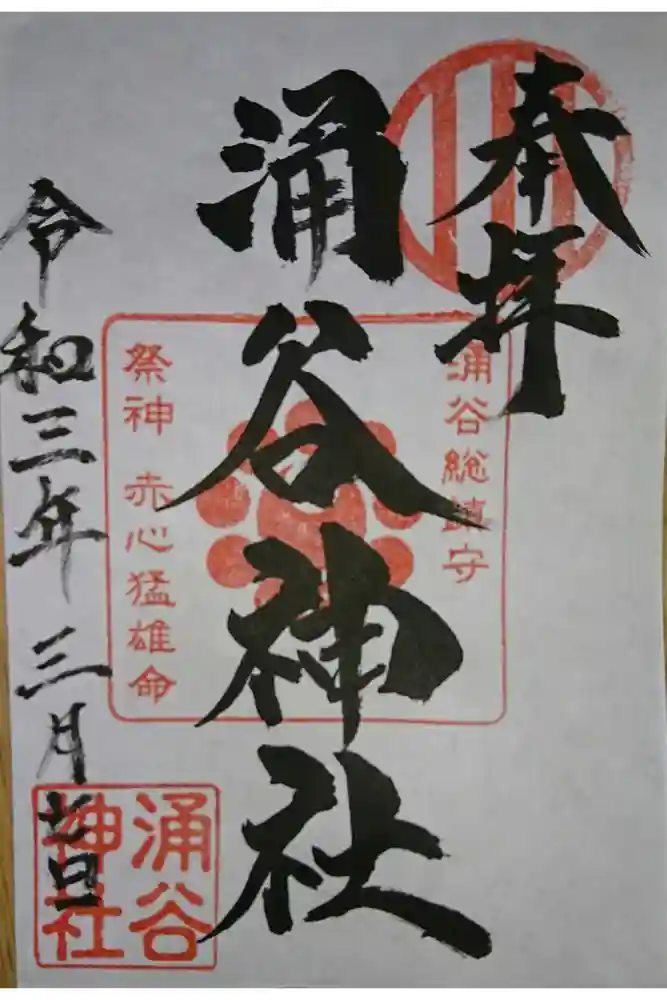 奉拝
涌谷総鎮守
涌谷神社
祭神 赤心猛雄命
令和三年三月七日
涌谷
神社